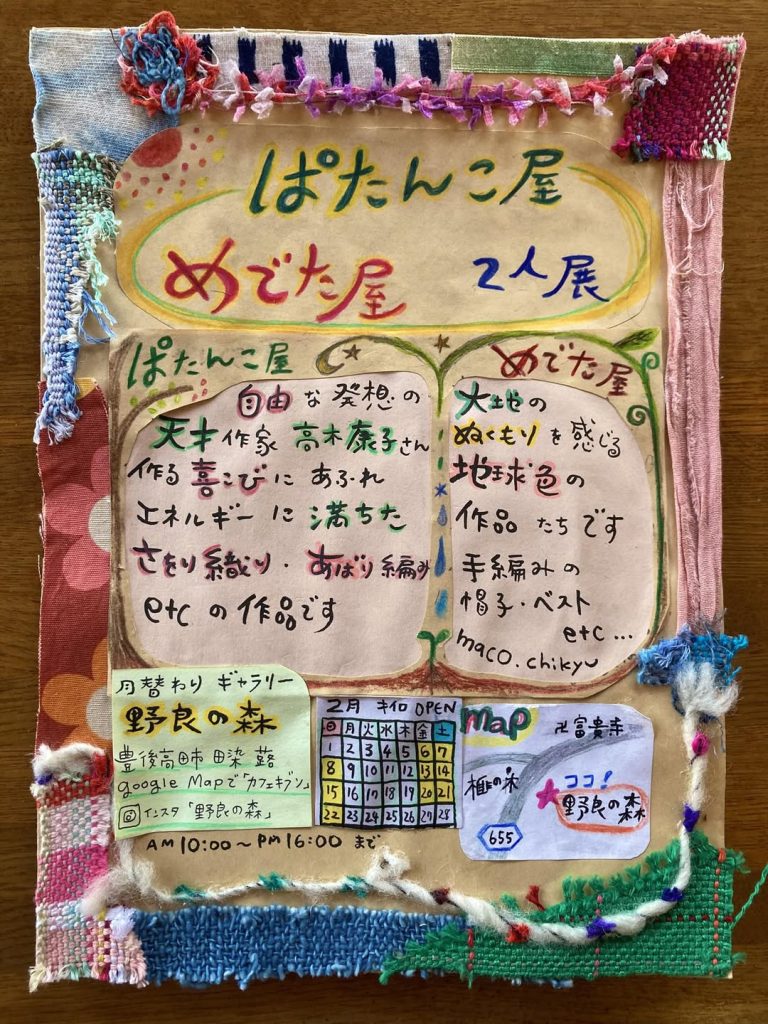 ぱたんこ屋
めでた屋 2人展
ぱたんこ屋
自由な発想の
天才作家 高木康子さん
作る喜こびに あふれ
エネルギーに満ちた
さをり織り・あばり編み
etcの作品です
めでた屋
大地の
ぬくもりを感じる
地球色の
作品たちです
手編みの
帽子・ベスト
etc...
maco.chikyu
月替わり ギャラリー
野良の森
豊後高田市 田染 蕗
google Mapで「カフェキブン」
インスタ「野良の森」
2月 キイロ OPEN
日 月 火 水 木 金 土
1 2 3 4 5 6 7
8 9 10 11 12 13 14
15 16 17 18 19 20 21
22 23 24 25 26 27 28
AM10:00〜PM16:00 まで
map
卍富貴寺
榧の木
ココ!
野良の森
655